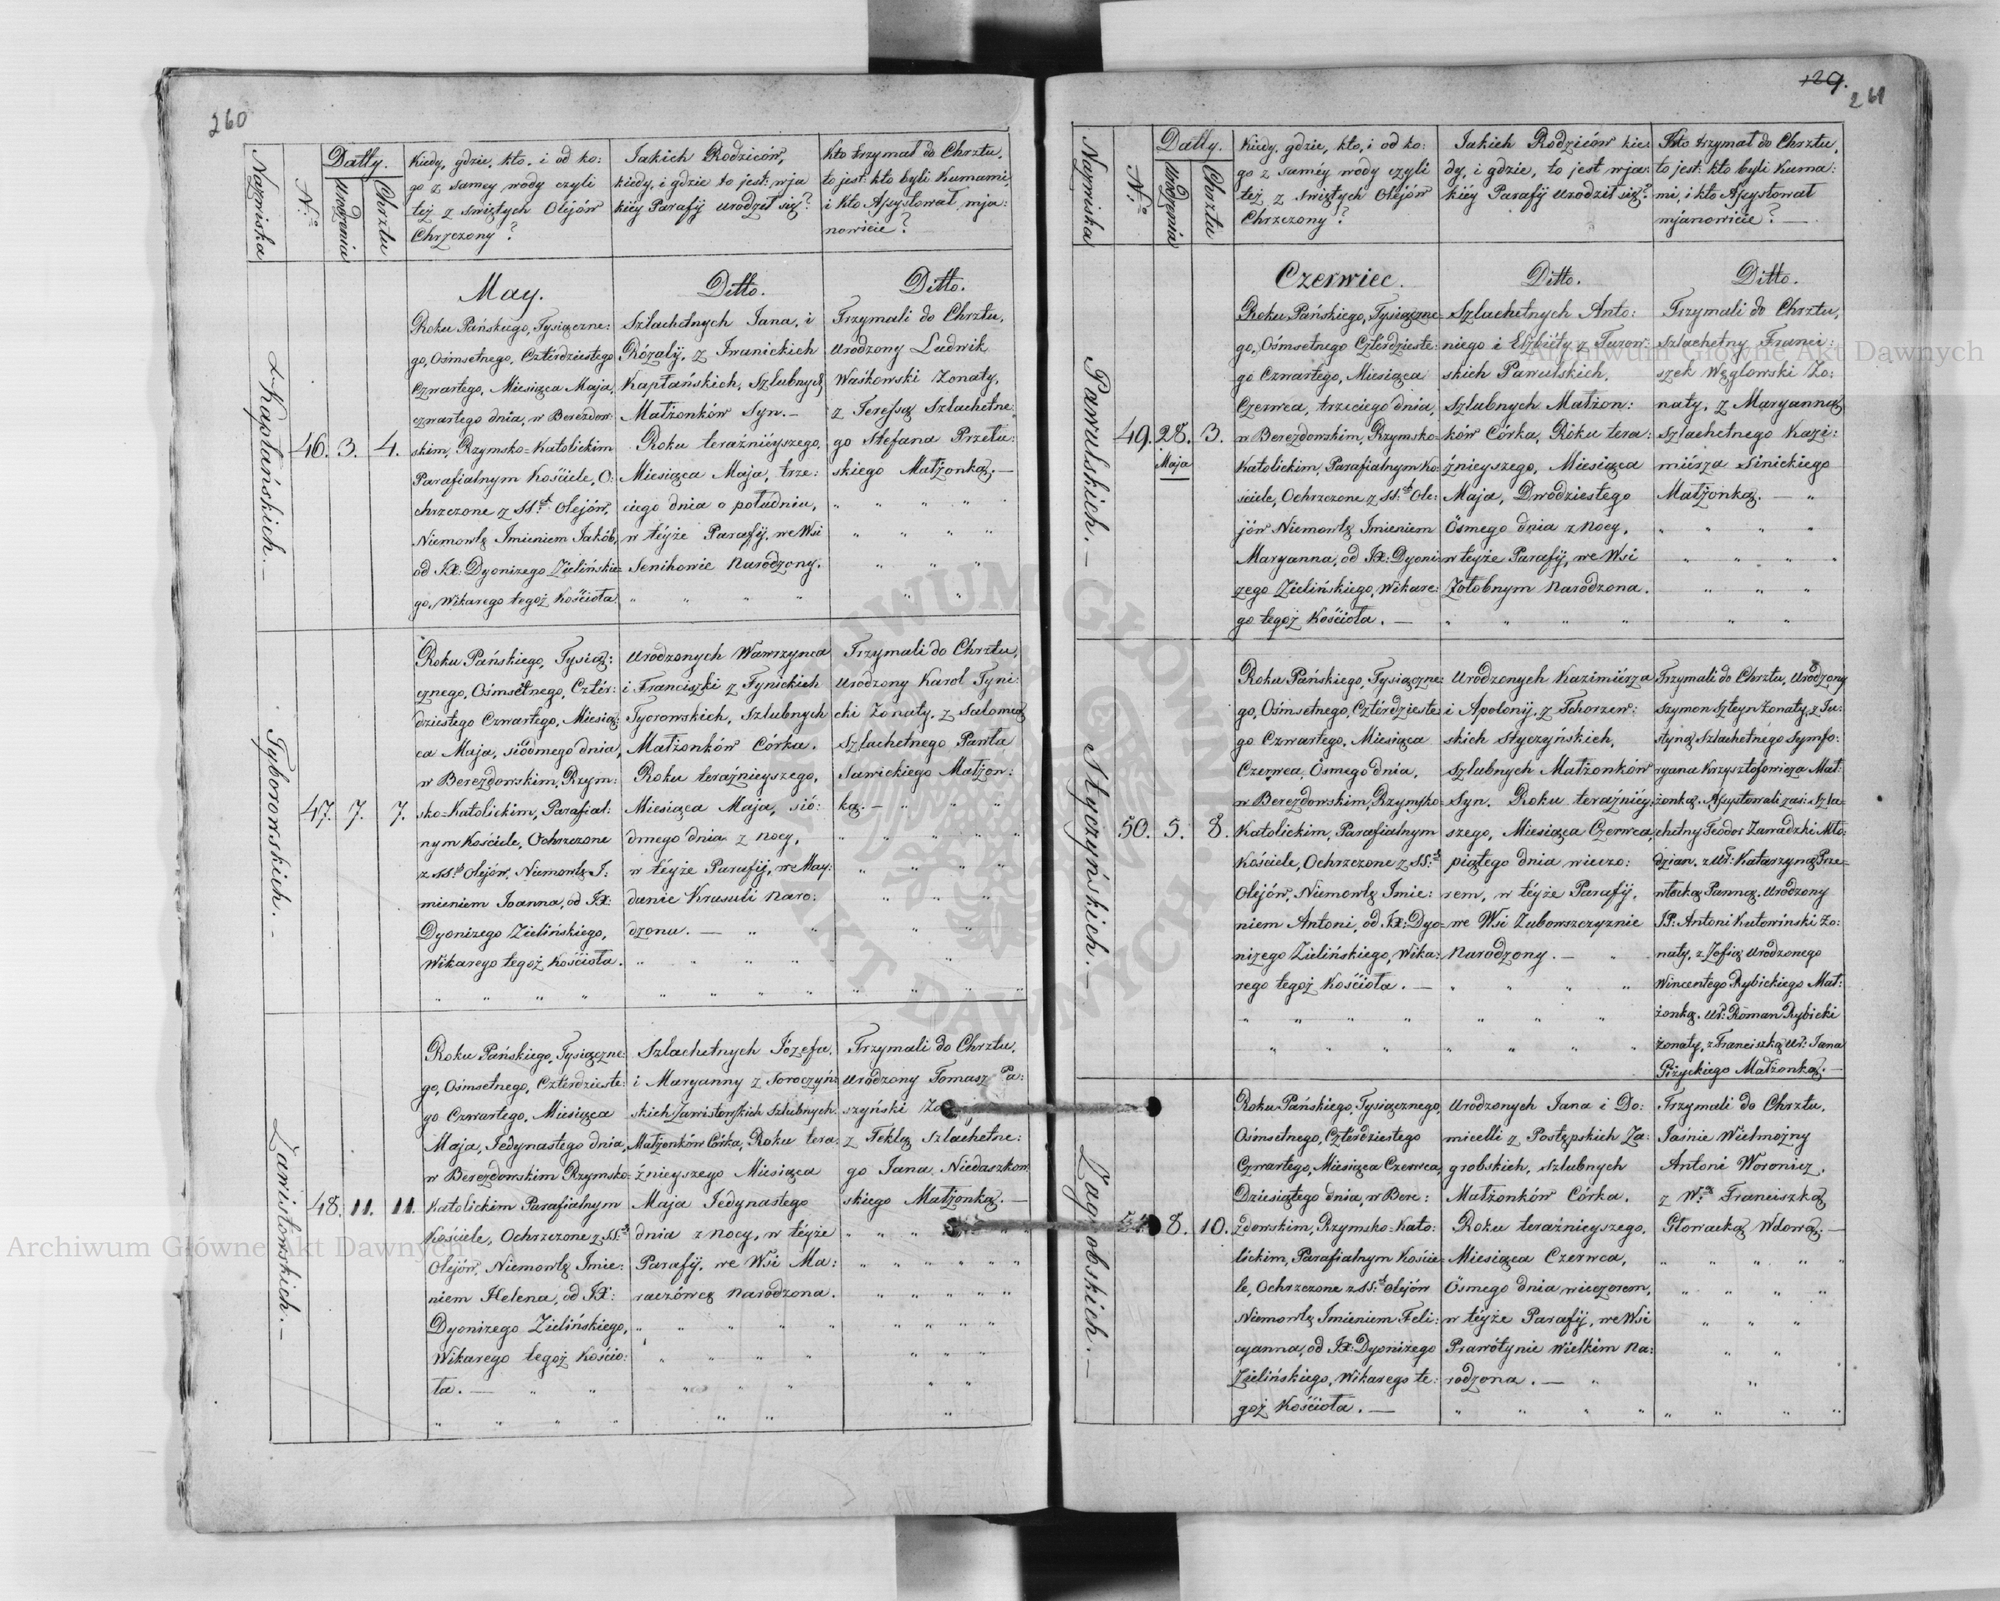 260
Nazwiska
N:o
Datty.
Urodzenia
Chrztu
Kiedy, gdzie, kto, i od ko:
go z samey wody czyli
też z świętych Olejów
Chrzczony?
Jakich Rodziców,
kiedy, i gdzie to jest: w ja
kiey Parafij urodzeł się?
Kto trzymał do Chrztu,
to jest: kto byli Kumami,
i kto Assystował, mja:
nowicie?
May.
Ditto.
Ditto.
Kapłańskich. —
46. 3. 4.
Roku Pańskiego, Tysiączne:
go, Ośmsetnego, Czterdziestego
Czwartego, Miesiąca Maja,
czwartego dnia, w Berezdow:
skim, Rzymsko=Katolickim
Parafialnym Kościele, O:
chrzczone z SS:t Olejów,
Niemowlę Imieniem Jakób,
od JX: Dyonizego Zielińskie=
go, Wikarego tegoż Kościoła
Szlachetnych Jana, i
Rózalij, z Iwanickich
Kapłańskich, Szlubnych
Małżonków Syn. —
Roku teraźniéyszego,
Miesiąca Maja, trze:
ciego dnia o południu,
w téyże Parafij, we Wsi
Senihowie Narodzony.
Trzymali do Chrztu,
Urodzony Ludwik
Waśkowski Żonaty,
z Teressą Szlachetne:
go Stefana Przełu:
skiego Małżonką. —
Tyborowskich. —
47. 7. 7.
Roku Pańskiego, Tysią:
cznego, Ośmsetnego, Czter:
dziestego Czwartego, Miesią:
ca Maja, siódmego dnia,
w Berezdowskim, Rzym:
sko=Katolickim, Parafial:
nym Kościele, Ochrzczone
z SS:t Olejów, Niemowlę I:
mieniem Joanna, od JX:
Dyonizego Zielińskiego,
Wikarego tegoż Kościoła.
Urodzonych Wawrzynca
i Franciszki z Tynickich
Tyorowskich, Szlubnych
Małżonków Córka.
Roku teraźnieyszego,
Miesiąca Maja, sió:
dmego dnia z nocy,
w téyże Parafij, we May:
danie Krasuli Naro:
dzona. —
Trzymali do Chrztu,
Urodzony Karol Tyni:
cki Żonaty, z Salomeą
Szlachetnego Pawła
Sawickiego Małżon:
ką. —
Zawistowskich. —
48. 11. 11.
Roku Pańskiego, Tysiączne:
go, Ośmsetnego, Czterdzieste:
go Czwartego, Miesiąca
Maja, Jedynastego dnia,
w Berezdowskim Rzymsko=
Katolickim Parafialnym
Kościele, Ochrzczone z SS:t
Olejów, Niemowlę Imie:
niem Helena, od JX:
Dyonizego Zielińskiego,
Wikarego tegoż Kościo:
ła. —
Szlachetnych Józefa,
i Maryanny z Soroczyń:
skich Zawistowskich Szlubnych
Małżonków Córka, Roku tera:
źnieyszego Miesiąca
Maja Jedynastego
dnia z nocy, w téyże
Parafij, we Wsi Ma:
raczówcę Narodzona.
Trzymali do Chrztu,
Urodzony Tomasz Pa:
szyński
z Teklą Szlachetne:
go Jana Niedaszkow
skiego Małżonką. —
129.
261
Nazwiska
N:o
Datty.
Urodzenia
Chrztu
Kiedy, gdzie, kto, i od ko:
go z saméy wody czyli
też z świętych Olejów
Chrzczony?
Jakich Rodziców kie:
dy, i gdzie, to jest w ja:
kiéy Parafij Urodził się?
Kto trzymał do Chrztu,
to jest: kto byli Kuma:
mi, i kto Assystował
mjanowicie? —
Czerwiec.
Ditto.
Ditto.
Pawulskich. —
49. 28. 3.
Maja
Roku Pańskiego, Tysiączne=
go, Ośmsetnego Czterdzieste:
go Czwartego, Miesiąca
Czerwca, trzeciego dnia,
w Berezdowskim, Rzymsko=
Katolickim, Parafialnym Ko:
ściele, Ochrzczone z SS:t Ole:
jów Niemowlę Imieniem
Maryanna, od JX: Dyoni:
zego Zielińskiego, Wikare:
go tegoż Kościoła. —
Szlachetnych Anto:
niego i Elzbiéty z Turow:
skich Pawulskich,
Szlubnych Małżon:
ków Córka, Roku tera:
źnieyszego, Miesiąca
Maja, Dwódziestego
Ósmego dnia z nocy,
w teyże Parafij, we Wsi
Żołobnym Narodzona.
Trzymali do Chrztu,
Szlachetny Franci:
szek Węglowski Żo:
naty, z Maryanną
Szlachetnego Kazi:
miérza Sinickiego
Małżonką. —
Styczyńskich. —
50. 5. 8.
Roku Pańskiego, Tysiączne:
go, Ośmsetnego, Cztérdzieste:
go Czwartego, Miesiąca
Czerwca, Ósmego dnia,
w Berezdowskim, Rzymsko=
Katolickim, Parafialnym
Kościele, Ochrzczone z SS:t
Olejów, Niemowlę Imie:
niem Antoni, od JX: Dyo=
nizego Zielińskiego, Wika:
rego tegoż Kościoła. —
Urodzonych Kazimiérza
i Apolonij, z Tchorzew:
skich Styczyńskich,
Szlubnych Małżonków
Syn. Roku teraźniéy
szego, Miesiąca Czerwca,
piątego dnia wieczo:
rem, w téyże Parafij,
we Wsi Zubowszczyznie
Narodzony. —
Trzymali do Chrztu, Urodzony
Szymon Szteyn Żonaty, z Ju:
styną Szlachetnego Symfo:
ryana Krzysztofowicza Mał:
żonką. Assystowali zaś: Szla=
chetny Teodor Zawadzki Mło:
dzian, z Ur: Katarzyną Prze=
włocką Panną. Urodzony
JP: Antoni Kutowiński Żo:
naty, z Zofią Urodzonego
Wincentego Rybickiego Mał:
żonką. Ur: Roman Rybicki
żonaty, z Franciszką Ur: Jana
Giżyckiego Małżonką. —
Zagrobskich. —
51. 8. 10.
Roku Pańskiego, Tysiącznego,
Ośmsetnego, Czterdziestego
Czwartego, Miesiąca Czerwca,
Dziesiątego dnia, w Bere:
zdowskim, Rzymsko=Kato:
lickim, Parafialnym Koście=
le, Ochrzczone z SS:t Olejów
Niemowlę Imieniem Feli:
cyanna, od JX: Dyonizego
Zielińskiego, Wikarego te:
goż Kościoła. —
Urodzonych Jana i Do:
micelli z Postępskich Za:
grobskich, Szlubnych
Małżonków Córka,
Roku teraźnieyszego,
Miesiąca Czerwca,
Ósmego dnia wieczorem,
w téyże Parafij, we Wsi
Prawótynie Wielkim Na:
rodzona. —
Trzymali do Chrztu,
Jaśnie Wielmożny
Antoni Woronicz,
z W:ą Franciszką
Głowacką Wdową. —
Archiwum Główne Akt Dawnych
Archiwum Główne Akt Dawnych
ARCHIWUM GŁÓWNE AKT DAWNYCH